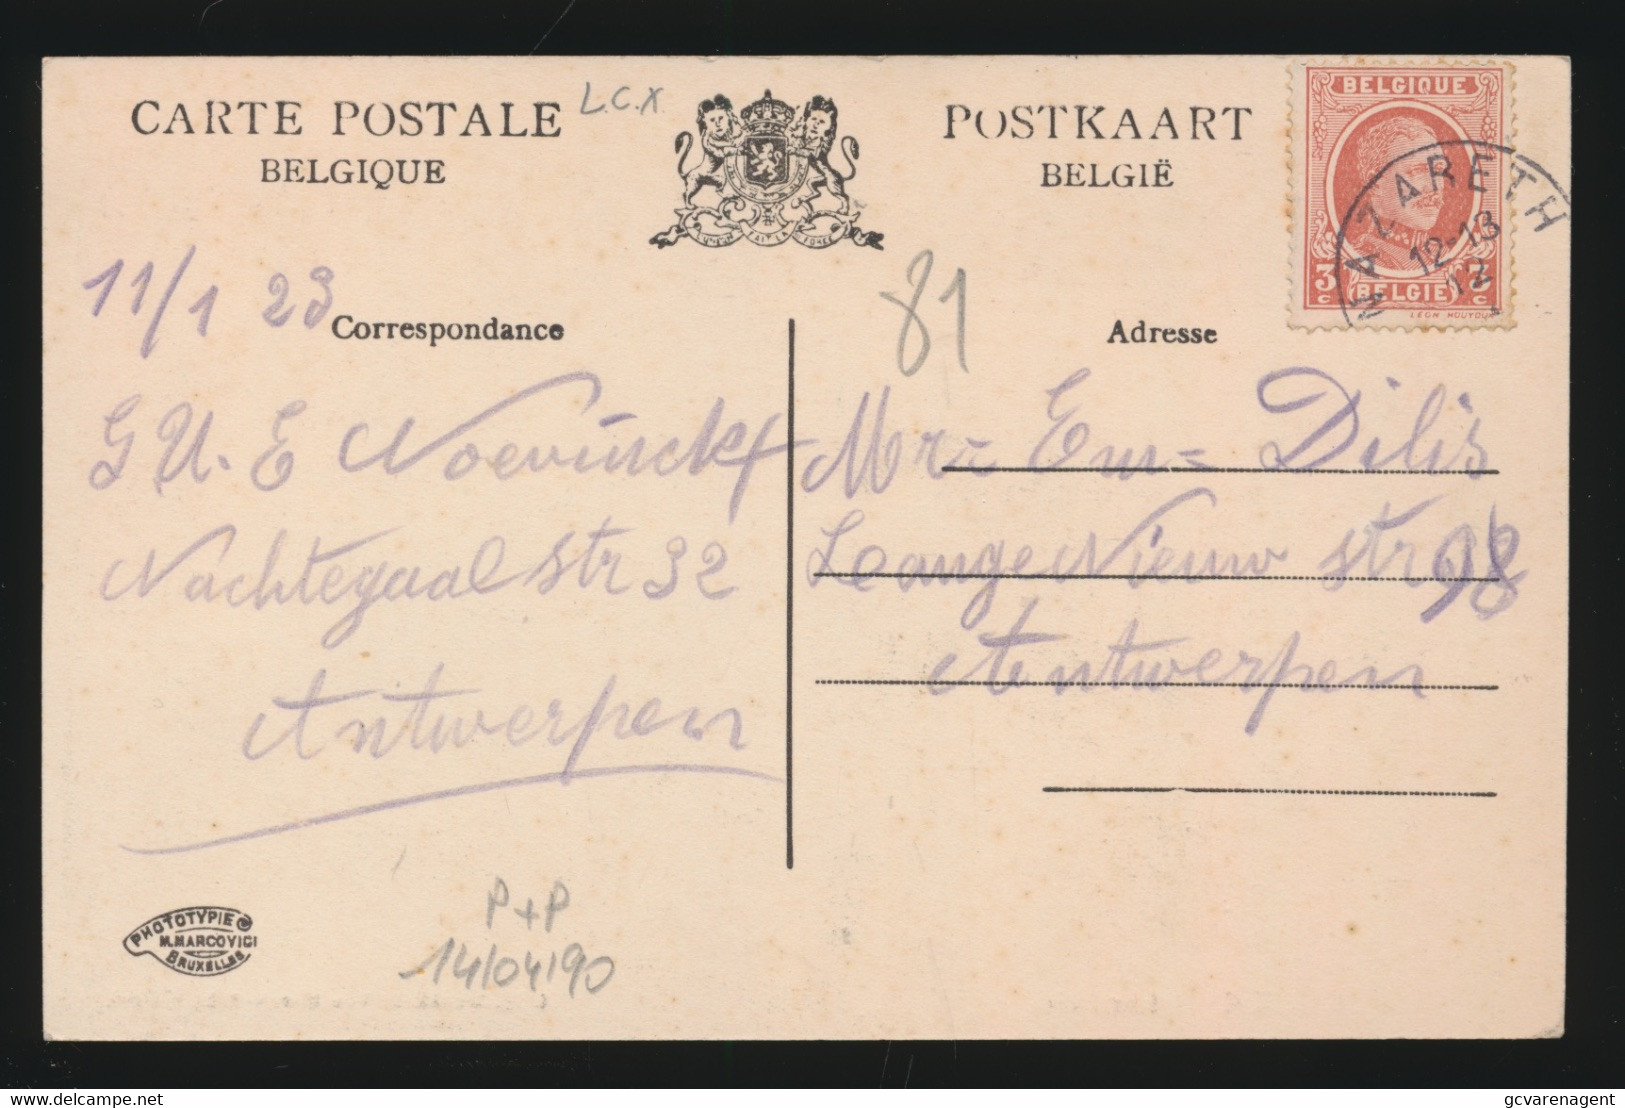 CARTE POSTALE
BELGIQUE
L.C.X
L'UNION FAIT LA FORCE
POSTKAART
BELGIË
BELGIQUE
3c 3c
BELGIË
LEON HOUYOUX
NAZARETH
12-13
12
11/1 23
Correspondance
81
Adresse
G U. E Noevinckx
Nachtegaal str 32
Antwerpen
Mr= Em= Dilis
Lange Nieuw str 98
Antwerpen
PHOTOTYPIE
M. MARCOVICI
BRUXELLES
P+P
14/04/90
delcampe.net
gcvarenagent